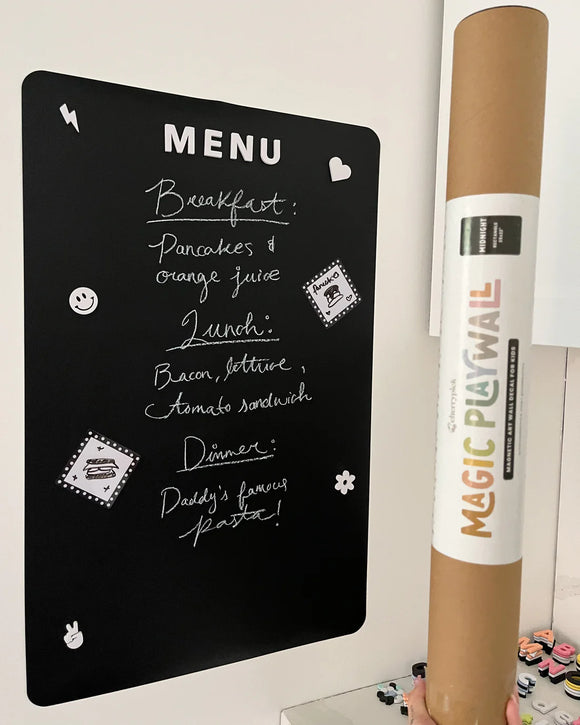 MENU
Breakfast:
Pancakes &
orange juice
Lunch:
Bacon, lettuce,
tomato sandwich
Dinner:
Daddy's famous
pasta!
MIDNIGHT
cherrypick
MAGIC PLAYWALL
MAGNETIC ART WALL DECAL FOR KIDS